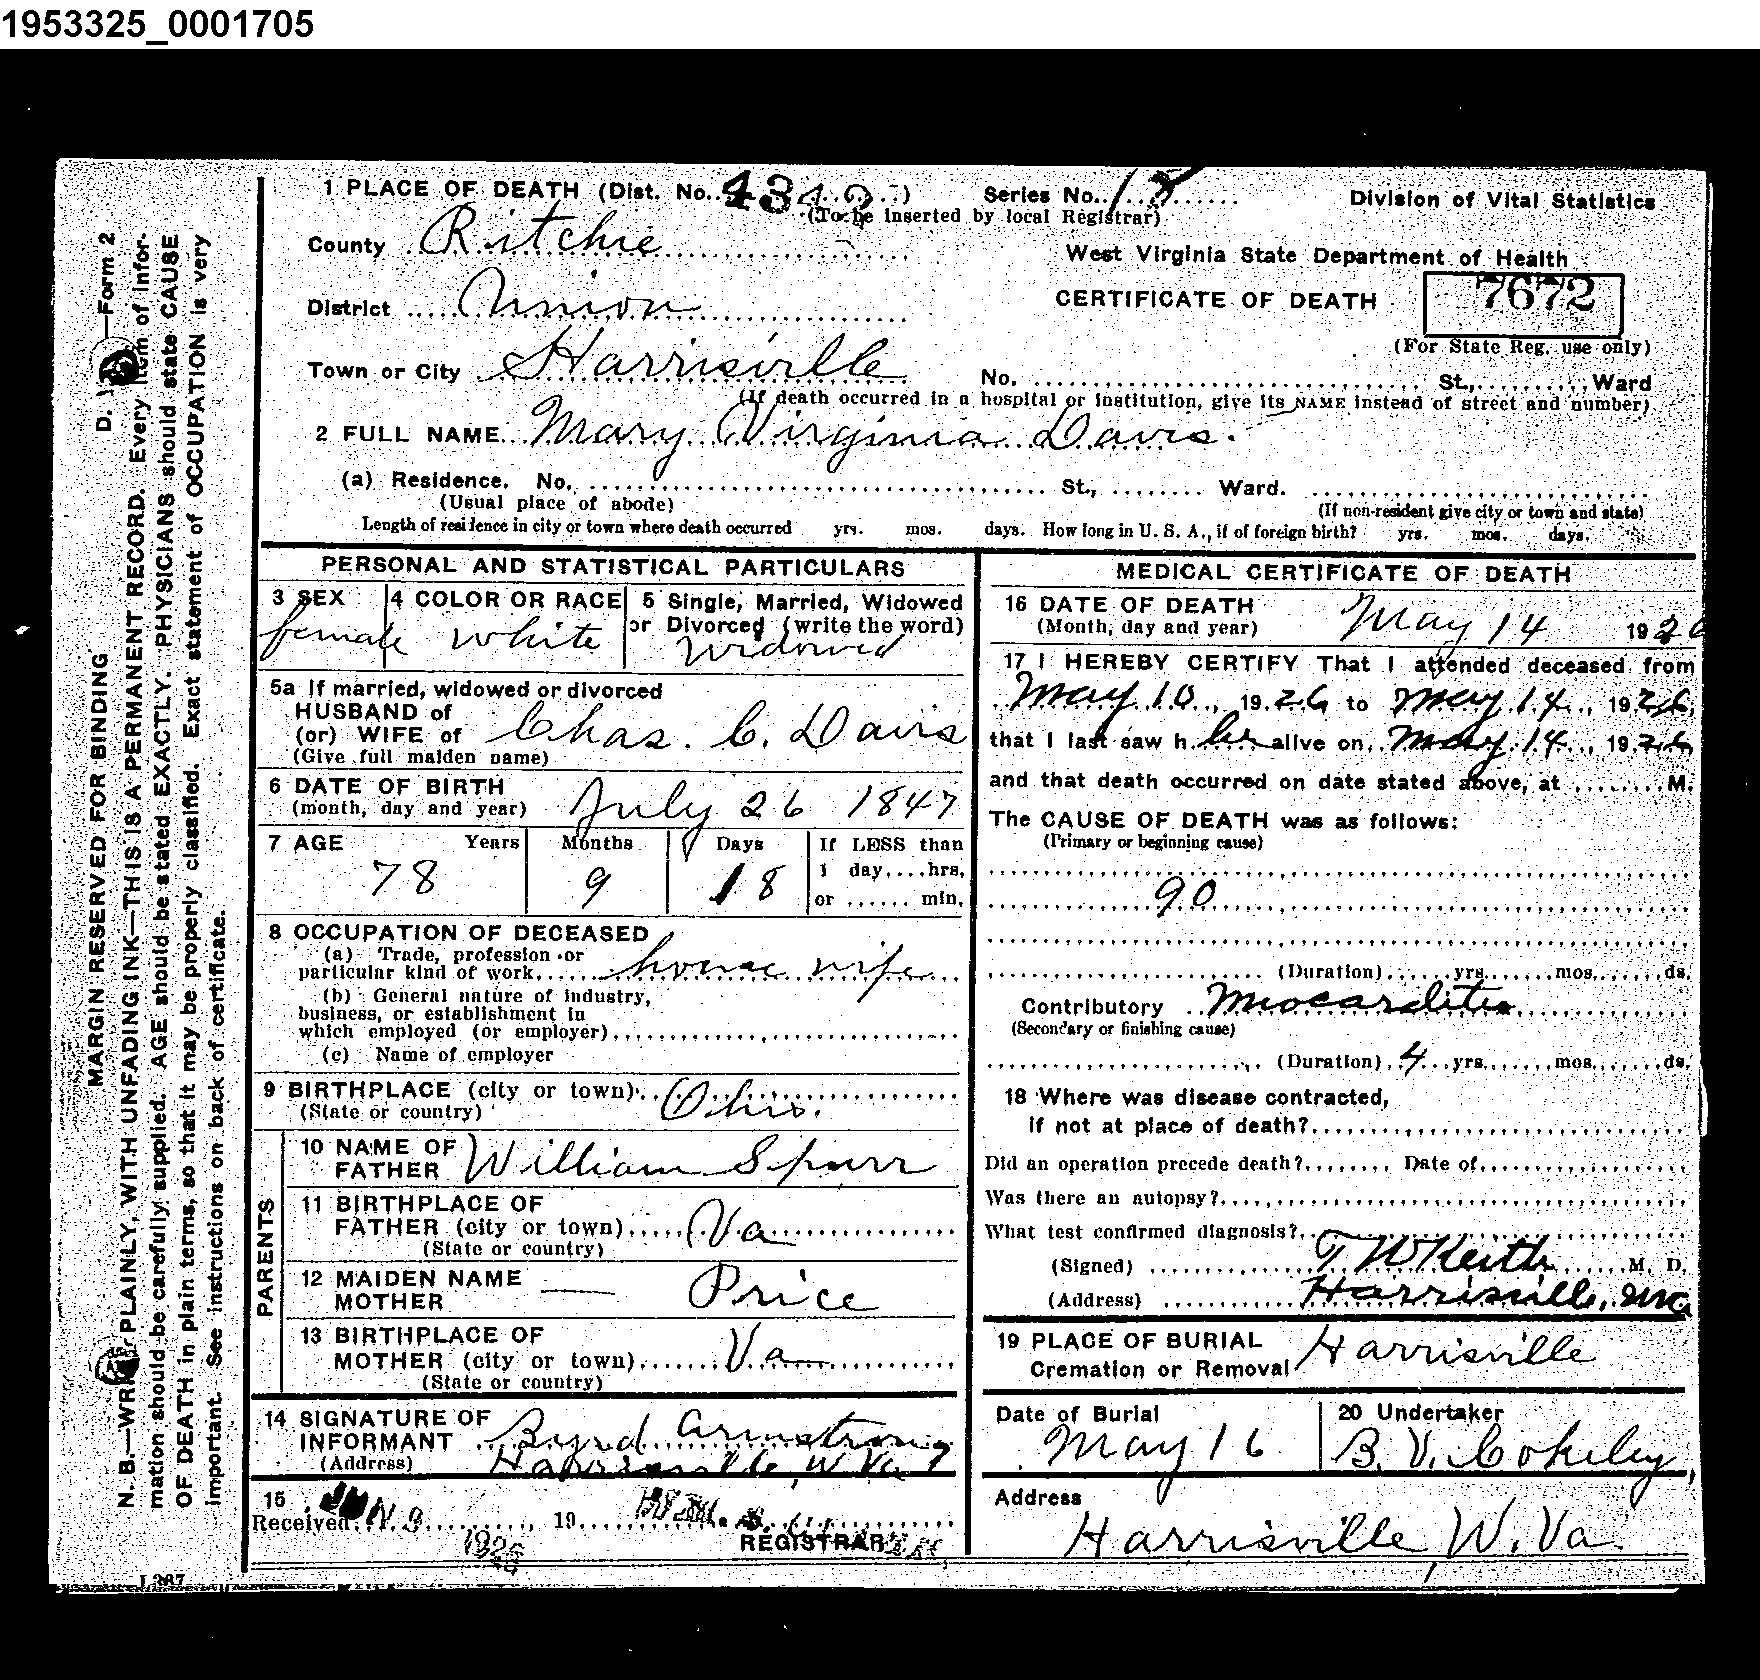 1953325_0001705
1 PLACE OF DEATH (Dist. No. 4342) Series No. 18 Division of Vital Statistics
(To be inserted by local Registrar)
County Ritchie
West Virginia State Department of Health
District Union
CERTIFICATE OF DEATH 7672
(For State Reg. use only)
Town or City Harrisville No. St., Ward
(If death occurred in a hospital or institution, give its NAME instead of street and number)
2 FULL NAME Mary Virginia Davis.
(a) Residence. No. St., Ward.
(Usual place of abode) (If non-resident give city or town and state)
Length of residence in city or town where death occurred yrs. mos. days. How long in U. S. A., if of foreign birth? yrs. mos. days.
PERSONAL AND STATISTICAL PARTICULARS
3 SEX 4 COLOR OR RACE 5 Single, Married, Widowed
or Divorced (write the word)
female white Widowed
5a If married, widowed or divorced
HUSBAND of
(or) WIFE of Chas. C. Davis
(Give full maiden name)
6 DATE OF BIRTH
(month, day and year) July 26 1847
7 AGE Years Months Days If LESS than
1 day....hrs,
78 9 18
or ...... min.
8 OCCUPATION OF DECEASED
(a) Trade, profession or
particular kind of work house wife
(b) General nature of industry,
business, or establishment in
which employed (or employer)
(c) Name of employer
9 BIRTHPLACE (city or town) Ohio.
(State or country)
PARENTS
10 NAME OF
FATHER William Spurr
11 BIRTHPLACE OF
FATHER (city or town) Va
(State or country)
12 MAIDEN NAME
MOTHER — Price
13 BIRTHPLACE OF
MOTHER (city or town) Va
(State or country)
14 SIGNATURE OF
INFORMANT Byrd Armstrong
(Address) Harrisville, W. Va
15
Received JUN 9 19
1926 REGISTRAR
MEDICAL CERTIFICATE OF DEATH
16 DATE OF DEATH
(Month, day and year) May 14 1926
17 I HEREBY CERTIFY That I attended deceased from
May 10, 1926 to May 14, 1926,
that I last saw her alive on May 14, 1926
and that death occurred on date stated above, at M.
The CAUSE OF DEATH was as follows:
(Primary or beginning cause)
90
(Duration) yrs. mos. ds.
Contributory Miocarditis
(Secondary or finishing cause)
(Duration) 4 yrs. mos. ds.
18 Where was disease contracted,
if not at place of death?
Did an operation precede death? Date of
Was there an autopsy?
What test confirmed diagnosis?
(Signed) T W Keith M. D.
(Address) Harrisville, WVa
19 PLACE OF BURIAL
Cremation or Removal Harrisville
Date of Burial 20 Undertaker
May 16 B. V. Cokeley,
Address
Harrisville, W. Va.
D. —Form 2
MARGIN RESERVED FOR BINDING
N. B.—WRITE PLAINLY, WITH UNFADING INK—THIS IS A PERMANENT RECORD. Every item of infor-
mation should be carefully supplied. AGE should be stated EXACTLY. PHYSICIANS should state CAUSE
OF DEATH in plain terms, so that it may be properly classified. Exact statement of OCCUPATION is very
important. See instructions on back of certificate.